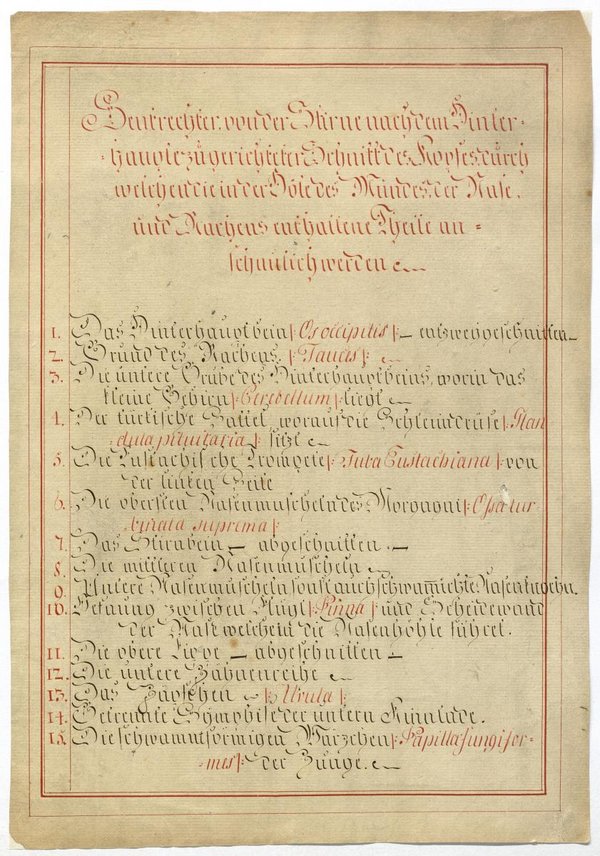 Senkrechter, von der Stirne nach dem Hinter-
haupte zu gerichteter Schnitt des Kopfes, durch
welchen die in der Höle des Mundes, der Nase,
und Rachens enthaltene Theile an-
schaulich werden.
1. Das Hinterhauptbein |: Os occipitis :| entzweygeschnitten
2. Grund des Rachens. |: Faucis :|
3. Die untere Grube des Hinterhauptbeins, worin das
kleine Gehirn |: Cerebellum :| liegt
4. Der türkische Sattel worauf die Schleimdrüse |: Glan
dula pituitaria :| sitzt
5. Die Eustachische Trompete |: Tuba Eustachiana :| von
der linken Seite
6. Die obersten Nasenmuscheln des Morgagni |: Ossa tur-
binata suprema :|
7. Das Stirnbein abgeschnitten.
8. Die mittleren Nasenmuscheln
9. Untere Nasenmuscheln sonst auch schwammichte Nasenknochen.
10. Öfnung zwischen Flügl |: Pinna :| und Scheidewand
der Nase welche in die Nasenhöhle führet.
11. Die obere Lippe abgeschnitten
12. Die untere Zähnenreihe
13. Das Zäpfchen |: Uvula :|
14. Getrennte Symphise der untern Kinnlade.
15. Die schwammförmigen Wärzchen |: Papilla fungifor-
mes :| der Zunge.